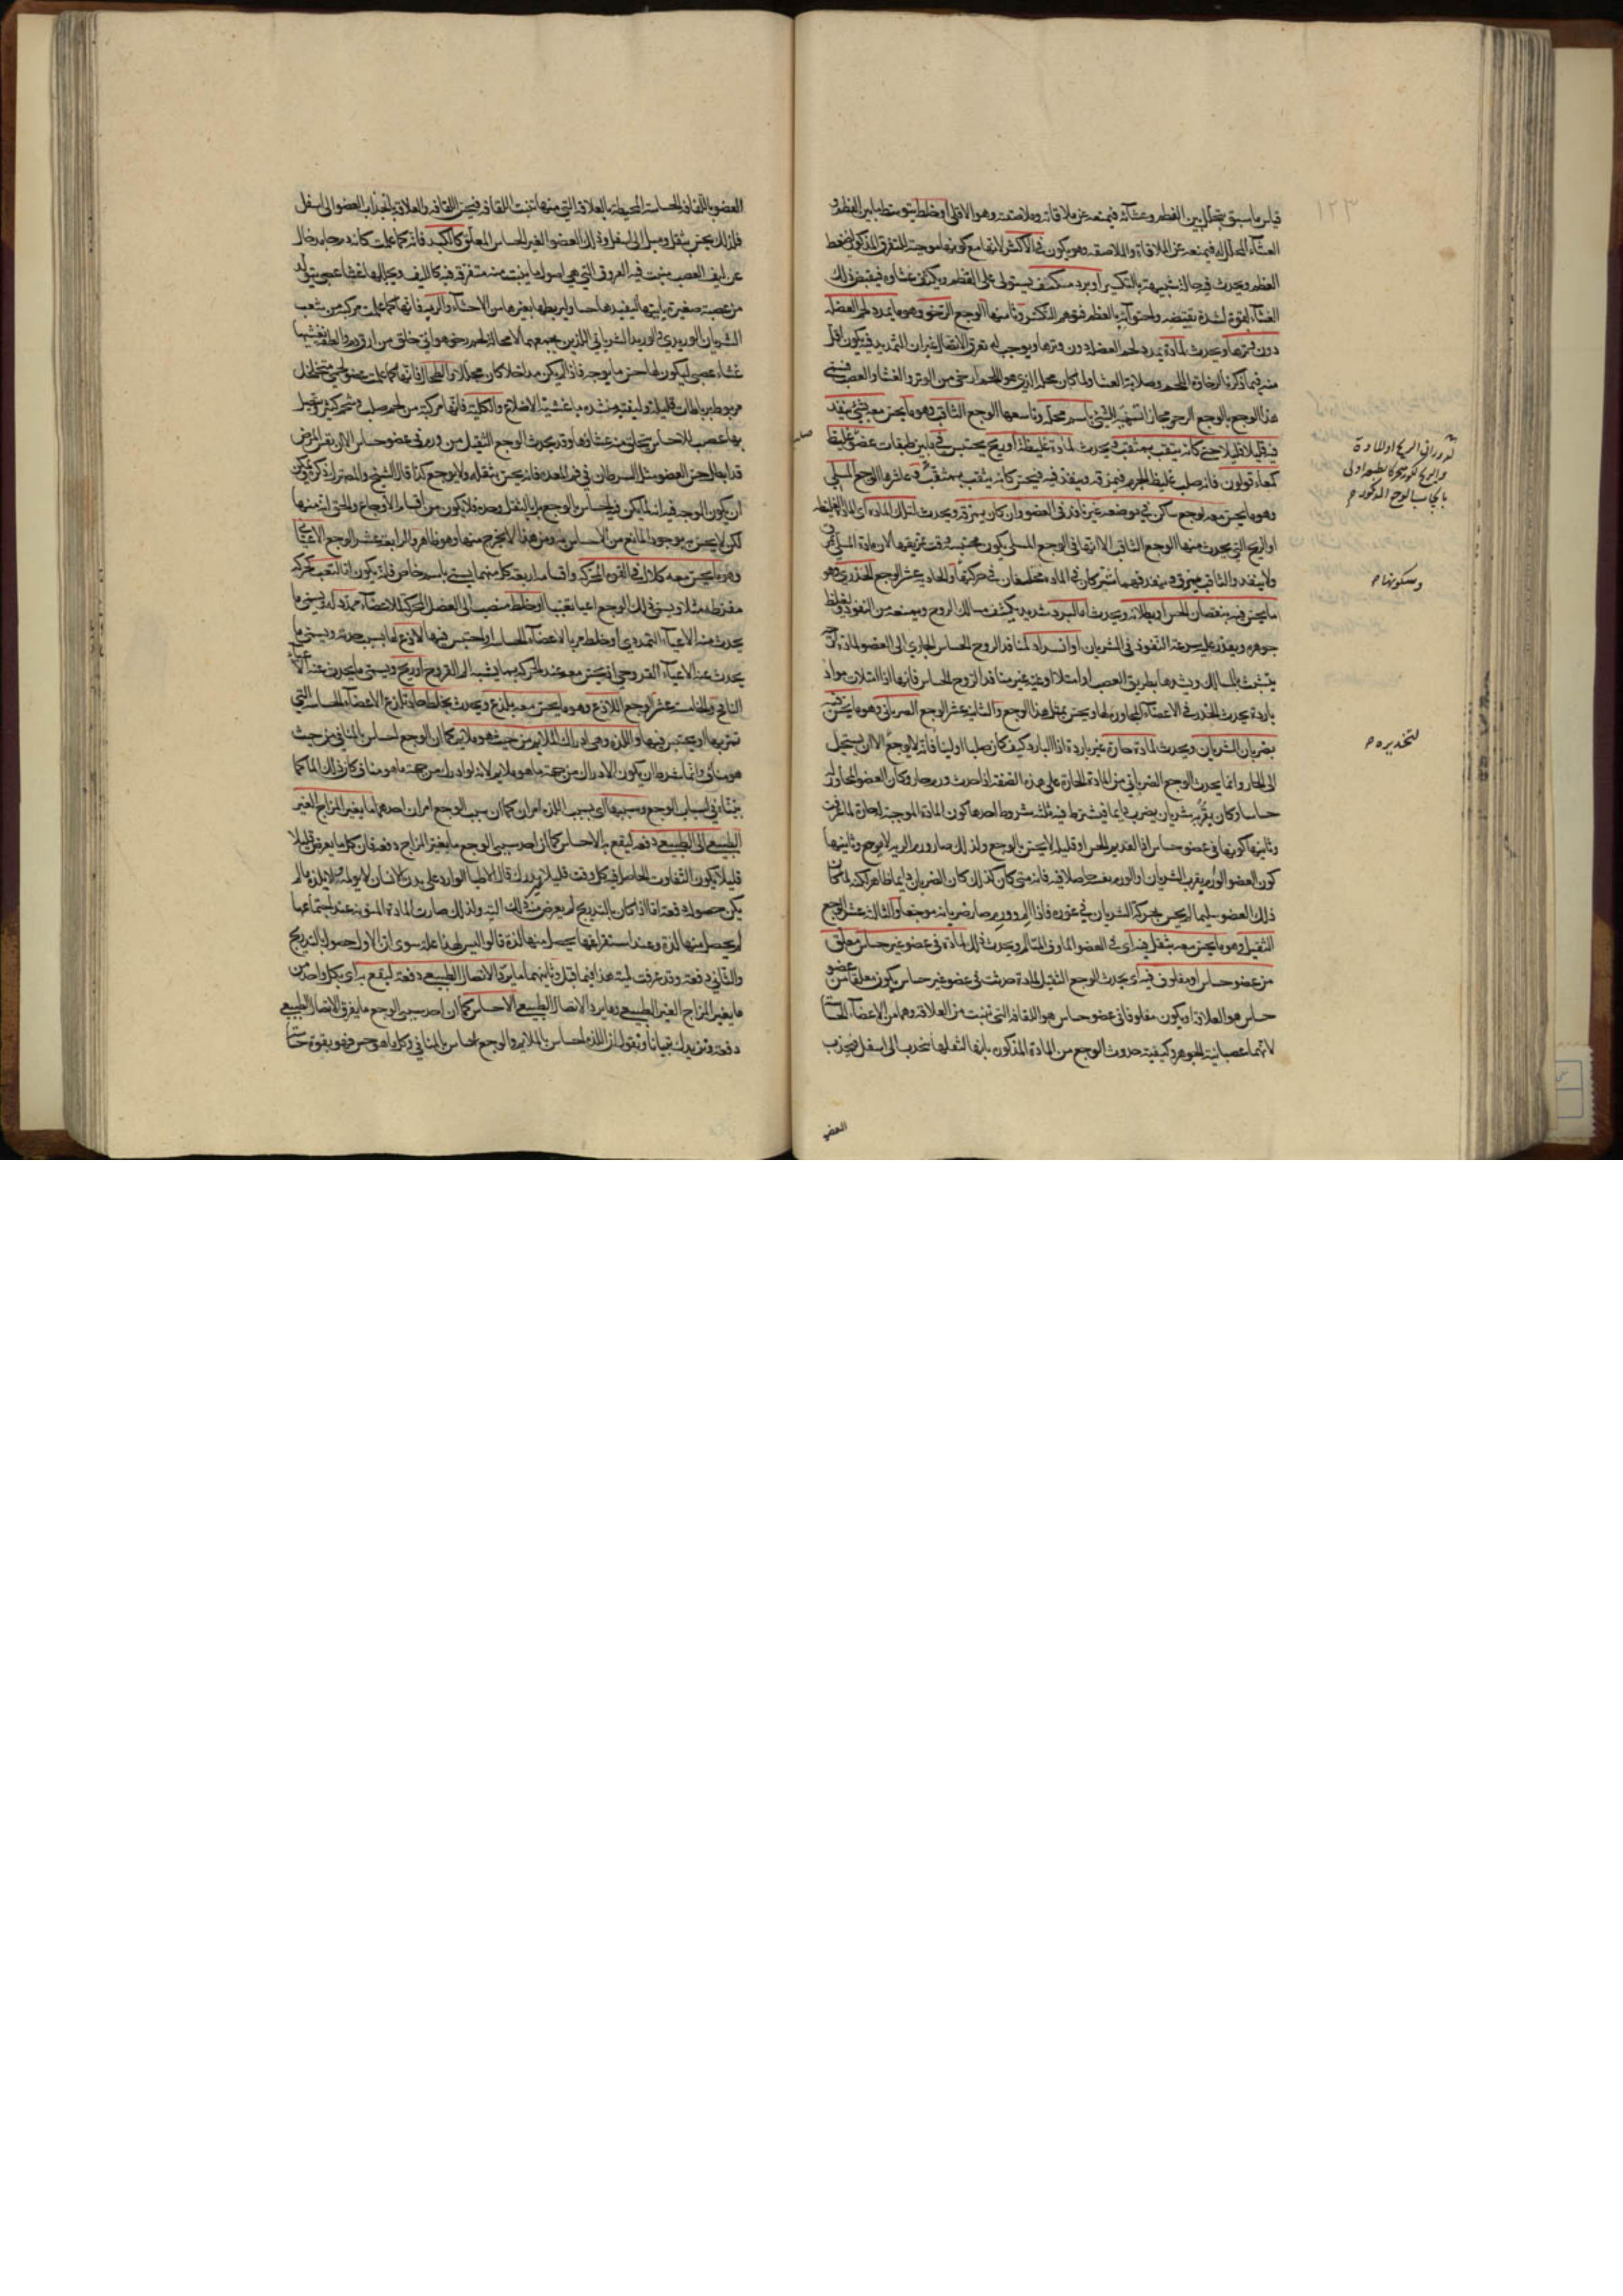 ١٢٣
قياس ما سبق يتخلل بين العظم وغشائه فيمنعه عن ملاقاته وملاصقته وهو الاقل او خلط يتوسط ما بين العظم و
الغشاء المجلل له فيمنعه عن الملاقاة والملاصقة وهو يكون في الاكثر
العظم ويحدث فيه حالة شبيهة بالتكسير او برد مستكثف يستولي على العظم ويكثف غشاوه فيقبض ذلك
الغشاء بقوة لشدة تقبضه واحتوائه بالعظم فهو هم التكسر وثامنها الوجع الرخو وهو ما يمدد لحم العضلة
دون وترها ويحدث لمادة تمدد لحم العضل دون وترها ويوجب له تفرق الاتصال غير ان التمديد فيه يكون اقل
منه فيما ذكرنا لرخاوة اللحم وصلابة الغشاء ولما كان محله الذي هو اللحم ارخى من الوتر والغشاء والعصب فسمي
هذا الوجع بالوجع الرخو مجازا تسمية للشيء باسم محله وتاسعها الوجع الثاقب وهو ما يحس معه بشيء ينفذ
فيه قليلا قليلا حتى كانه يثقب بمثقب ويحدث لمادة غليظة او ريح تحتبس فيما بين طبقات عضو غليظ
كمعاء قولون فانه صلب غليظ الجرم فيمزقه وينفذ فيه فيحس كانه يثقب بمثقب وعاشرها الوجع المسلي
وهو ما يحس معه بوجع ساكن في موضعه غير نافذ في العضو وان كان يمزقه ويحدث لتلك المادة اي المادة الغليظة
او الريح التي يحدث منها الوجع الثاقب الا انها في الوجع المسلي يكون محتبسة وقت تمزيقها لان مادة المسلي تمزق
ولا ينفذ والثاقب يمزق وينفذ فهما مشتركان في المادة مختلفان في حركتها والحادي عشر الوجع الخدري وهو
ما يحس فيه بنقصان الحس او بطلانه ويحدث اما لبرد شديد يكثف مسالك الروح ويمنعه من النفوذ ويغلظ
جوهره ويعذر عليه سرعة النفوذ في الشريان او انسداد لمنافذ الروح الحساس الجاري الى العضو لمادة
باردة يحدث الخدر في الاعضاء المجاورة لها ويحس بمثل هذا الوجع والثاني عشر الوجع الضرباني وهو ما يحس فيه
بضربان الشريان ويحدث لمادة حارة غير باردة اذ البارد كيف كان صلبا او لينا فانه لا يوجع الا ان يستحيل
الى الحار وانما يحدث الوجع الضرباني من المادة الحارة على هذه الصفة اذا حدث ورم حار وكان العضو المجاور له
حساسا وكان بقربه شريان يضرب دايما فيشترط فيه ثلثة شروط احدها كون المادة الموجبة له حارة لما عرفت
وثانيها كونها في عضو حساس اذ العديم الحس او قليله لا يحس بالوجع ولذلك صار ورم الرية لا يوجع وثالثها
ذلك العضو سليما لم يحس بحركة الشريان في غوره فاذا الم وورم صار ضربانه موجعا والثالث عشر الوجع
الثقيل وهو ما يحس معه بثقل فيه اي في العضو الماوف المتالم ويحدث ذلك لمادة في عضو غير حساس معلق
من عضو حساس او ملفوف فيه اي يحدث الوجع الثقيل لمادة حدثت في عضو غير حساس يكون معلقا من عضو
حساس هو العلاقة او يكون ملفوفا في عضو حساس هو اللفافة التي تنبت من العلاقة وهما من الاعضاء الحساسة
لانهما عصبانية الجوهر وكيفية حدوث الوجع من المادة المذكورة بانها لثقلها تنجذب الى اسفل فيجذب
العضو
وسكونها
لتخديره
العضو باللفافة الحساسة المحيطة به العلاقة التي منها تنبت اللفافة فيحس اللفافة والعلاقة بانجذاب العضو الى اسفل
فلذلك يحس بثقل وميل الى اسفل وذلك العضو الغير الحساس المعلق كالكبد فانه كما علمت كانه دم جامد خال
عن ليف العصب ينبت فيه العروق التي هي اصول ما ينبت منه متفرقة فيه كالليف ويجللها غشاء عصبي يتولد
من عصبة صغيرة ياتيها ليفيدها حسا وليربطها بغيرها من الاحشاء والرية فانها كما علمت مركبة من شعب
الشريان الوريدي والوريد الشرياني اللذين يجمعهما لا محالة لحم رخو هوائي خلق من ارق دم والطفه يغشيها
غشاء عصبي ليكون لها حس ما بوجه فاذا لم يكن مداخلا كان مجللا والطحال فانه كما علمت عضو لحمي متخلخل
مربوط برباطات قليلة وليفية منشده باغشية الاضلاع والكلية فانها مركبة من لحم صلب وشحم كثير ويتصل
بها عصب للاحساس يتخلق منه غشاؤها وقد يحدث الوجع الثقيل من ورم في عضو حساس الا ان نفس المرض
قد ابطل حس العضو مثل السرطان في فم المعدة فانه يحس بثقله ولا يوجع كذا قال الشيخ
لكن لا يحس به بوجود المانع من الاحساس به ومن هذا لا يخرج منها وهو ظاهر والرابع عشر الوجع الاعيائي
وهو ما يحس معه كلال في القوة المحركة واقسامه اربعة كل منها يسمى باسم خاص فانه يكون اما لتعب بحركة
مفرطة مثلا ويسمى ذلك الوجع اعيا تعبيا او خلط منصب الى العضل المحركة للاعضاء ممدد له ويسمى ما
يحدث منه الاعياء التمددي او خلط مر بالاعضاء الحساسة او احتبس فيها لاذع لها بسبب حدته ويسمى ما
يحدث عنه الاعياء القروحي اذ يحس معه عند الحركة بما يشبه الم القروح او ريح ويسمى ما يحدث عنه الاعياء
النافخ والخامس عشر الوجع اللاذع وهو ما يحس معه بلذع ويحدث بخلط حاد يلذع الاعضاء الحساسة التي
تمر بها او يحتبس فيها واللذة وهي ادراك الملايم من حيث هو ملايم كما ان الوجع احساس بالمنافي من حيث
هو مناف وانما شرط ان يكون الادراك من جهة ما هو ملايم لانه لو ادرك من جهة ما هو مناف كان ذلك الما كما
بيناه في اسباب الوجع وسببها اي سبب اللذة امران كما ان سبب الوجع امران احدهما ما يغير المزاج الغير
الطبيعي الى الطبيعي دفعة ليقع به الاحساس كما ان احد سببي الوجع ما يغير المزاج دفعة فان كل ما يعرض قليلا
قليلا يكون التفاوت الحاصل فيه كل وقت قليلا
يكن حصوله دفعة اما اذا كان بالتدريج لم يعرض منه ذلك البتة ولذلك صارت المادة المنوية عند اجتماعها
لم يحصل منها لذة وعند استفراغها يحصل منها لذة قالوا ليس لهذا علة سوى ان الاول حصوله بالتدريج
والثاني دفعة وقد عرفت لمية هذا فيما قبل وثانيهما ما يرد الاتصال الطبيعي دفعة ليقع به اي بكل واحد من
ما يغير المزاج الغير الطبيعي وما يرد الاتصال الطبيعي الاحساس كما ان احد سببي الوجع ما يفرق الاتصال الطبيعي
دفعة ونزيدك تبيانا ونقول ان اللذة احساس بالملايم والوجع احساس بالمنافي وكل ما هو حس فهو بقوة حساسة